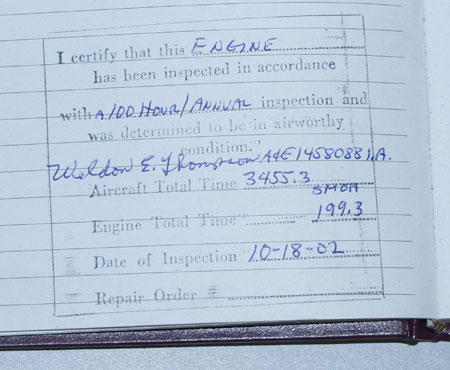 I certify that this ENGINE
has been inspected in accordance
with a 100 HOUR/ANNUAL inspection and
was determined to be in airworthy
condition."
Weldon E. Thompson A&E 1458088 I.A.
Aircraft Total Time 3455.3
SMOH
Engine Total Time 199.3
Date of Inspection 10-18-02
Repair Order #